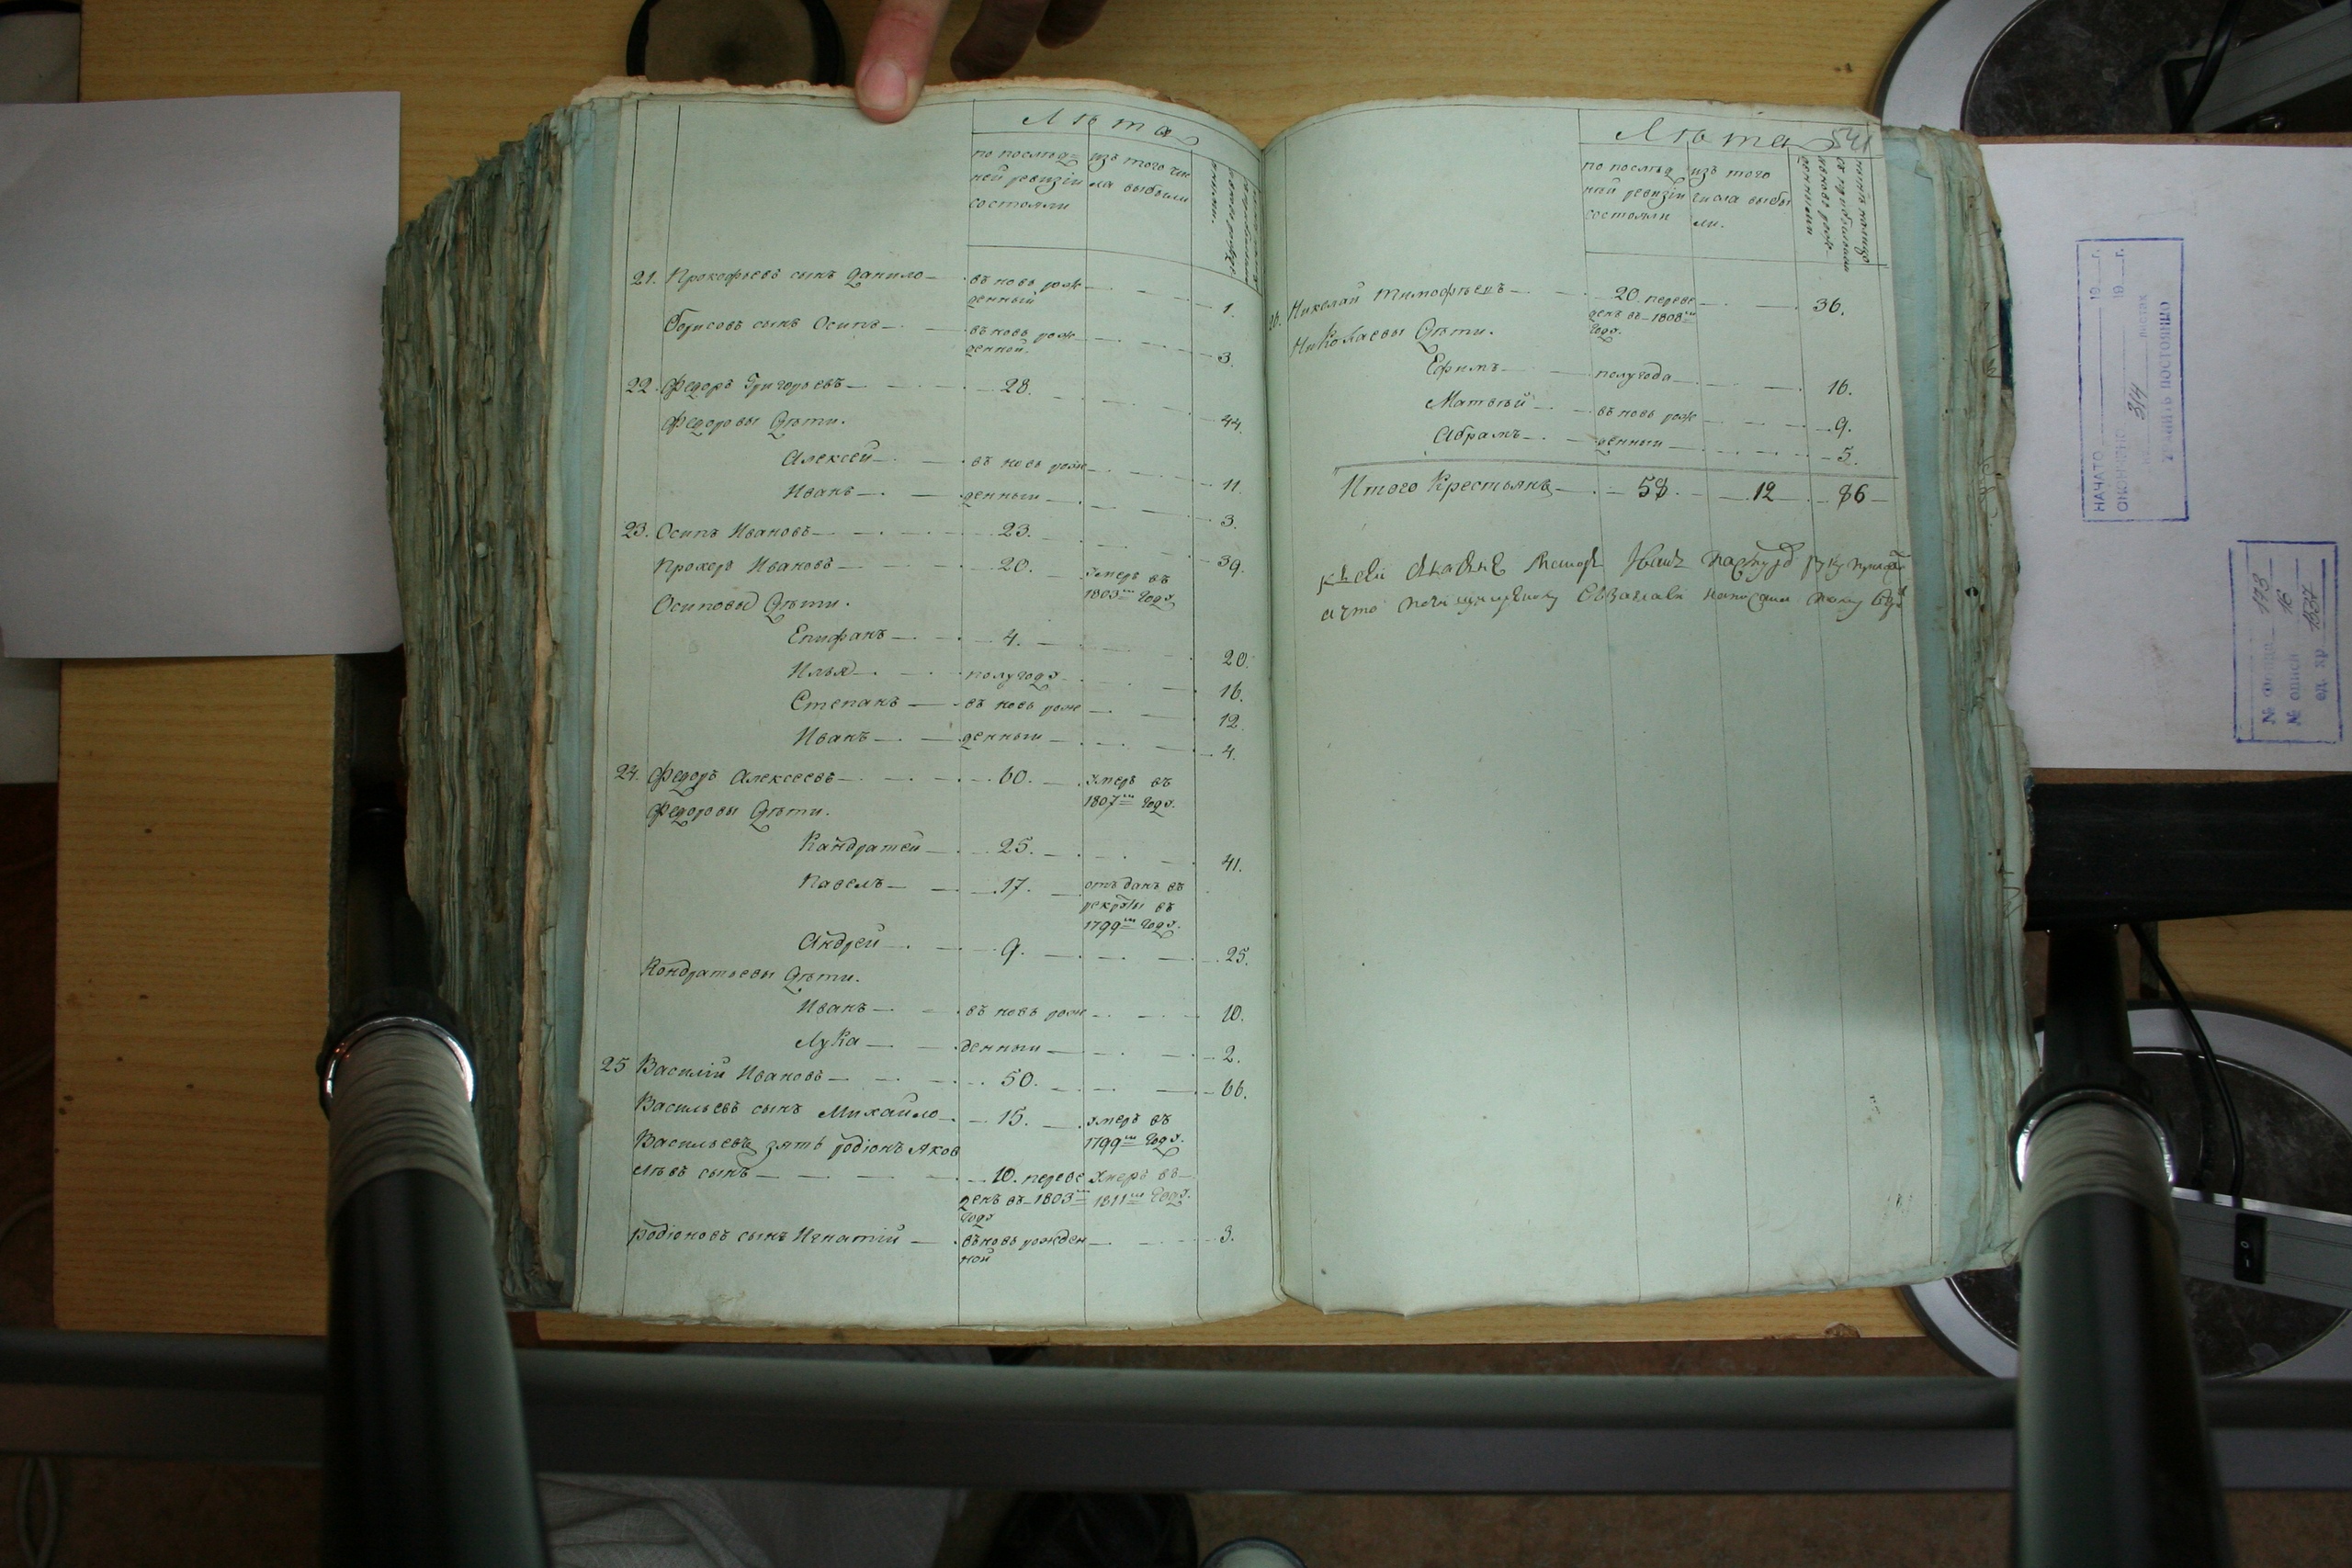 Лѣта
по послѣд=
ней ревизіи
состояли
изъ того чис
ла выбыли
21. Прокофьевъ сынъ Данило — въ новь рож — 1.
денный
Борисовъ сынъ Осипъ — въ новь рож — 3.
денной.
22. Федоръ Григорьевъ — 28. — 44.
Федоровы Дѣти.
Алексей — въ новь рож — 11.
Иванъ — денныи — 3.
23. Осипъ Ивановъ — 23. — 39.
Прохоръ Ивановъ — 20. — умеръ въ
1803м году
Осиповы Дѣти.
Епифанъ — 4. — 20.
Илья — полугода — 16.
Степанъ — въ новь рож — 12.
Иванъ — денныи — 4.
24. Федоръ Алексеевъ — 60. — умеръ въ
1807м году.
Федоровы Дѣти.
Кандратей — 25. — 41.
Павелъ — 17. — отъданъ въ
рекруты въ
1799м году.
Андрей — 9. — 25.
Кондратьевы Дѣти.
Иванъ — въ новь рож — 10.
Лука — денныи — 2.
25 Василій Ивановъ — 50. — 66.
Васильевъ сынъ Михайло — 15. — умеръ въ
1799м году.
Васильевъ зять Родіонъ Яков
лѣвъ сынъ — 10. переве умеръ въ
денъ въ 1803м 1811м году.
году
Родіоновъ сынъ Игнатій — въновь рожден — 3.
ной
Лѣта 541
по послѣд
ней ревизіи
состояли
изъ того
числа выбы
ли.
26. Николай Тимофѣевъ — 20. переве — 36.
денъ въ 1808м
году.
Николаевы Дѣти.
Ефимъ — полугода — 16.
Матвѣй — въ новь рож — 9.
Абрамъ — денныи — 5.
Итого Крестьянъ — 58 — 12 — 86
НАЧАТО 19 г.
ОКОНЧЕНО 19 г.
314 листах
ХРАНИТЬ ПОСТОЯННО
№ фонда 173
№ описи 16
ед. хр. 1537